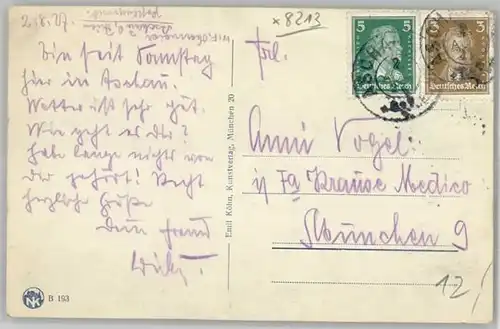 2.8.27.
postlagernd.
Bin seit Samstag
hier in Aschau.
Wetter ist sehr gut.
Wie geht es dir?
Habe lange nichts von
dir gehört! Recht
herzliche Grüße
Dein Freund
NK B 193
Emil Köhn, Kunstverlag, München 20
x 8213
Frl.
Anni Vogel
i/ Fa Krause Medico
München 9
12/
5 5
Deutsches Reich
3 3
Deutsches Reich